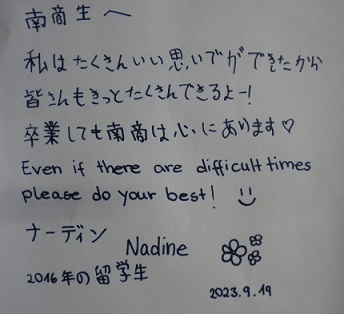 南商生へ
私はたくさんいい思いでができたから
皆さんもきっとたくさんできるよー!
卒業しても南商は心にあります♡
Even if there are difficult times
please do your best! :)
ナーディン
Nadine
2016年の留学生
2023.9.19